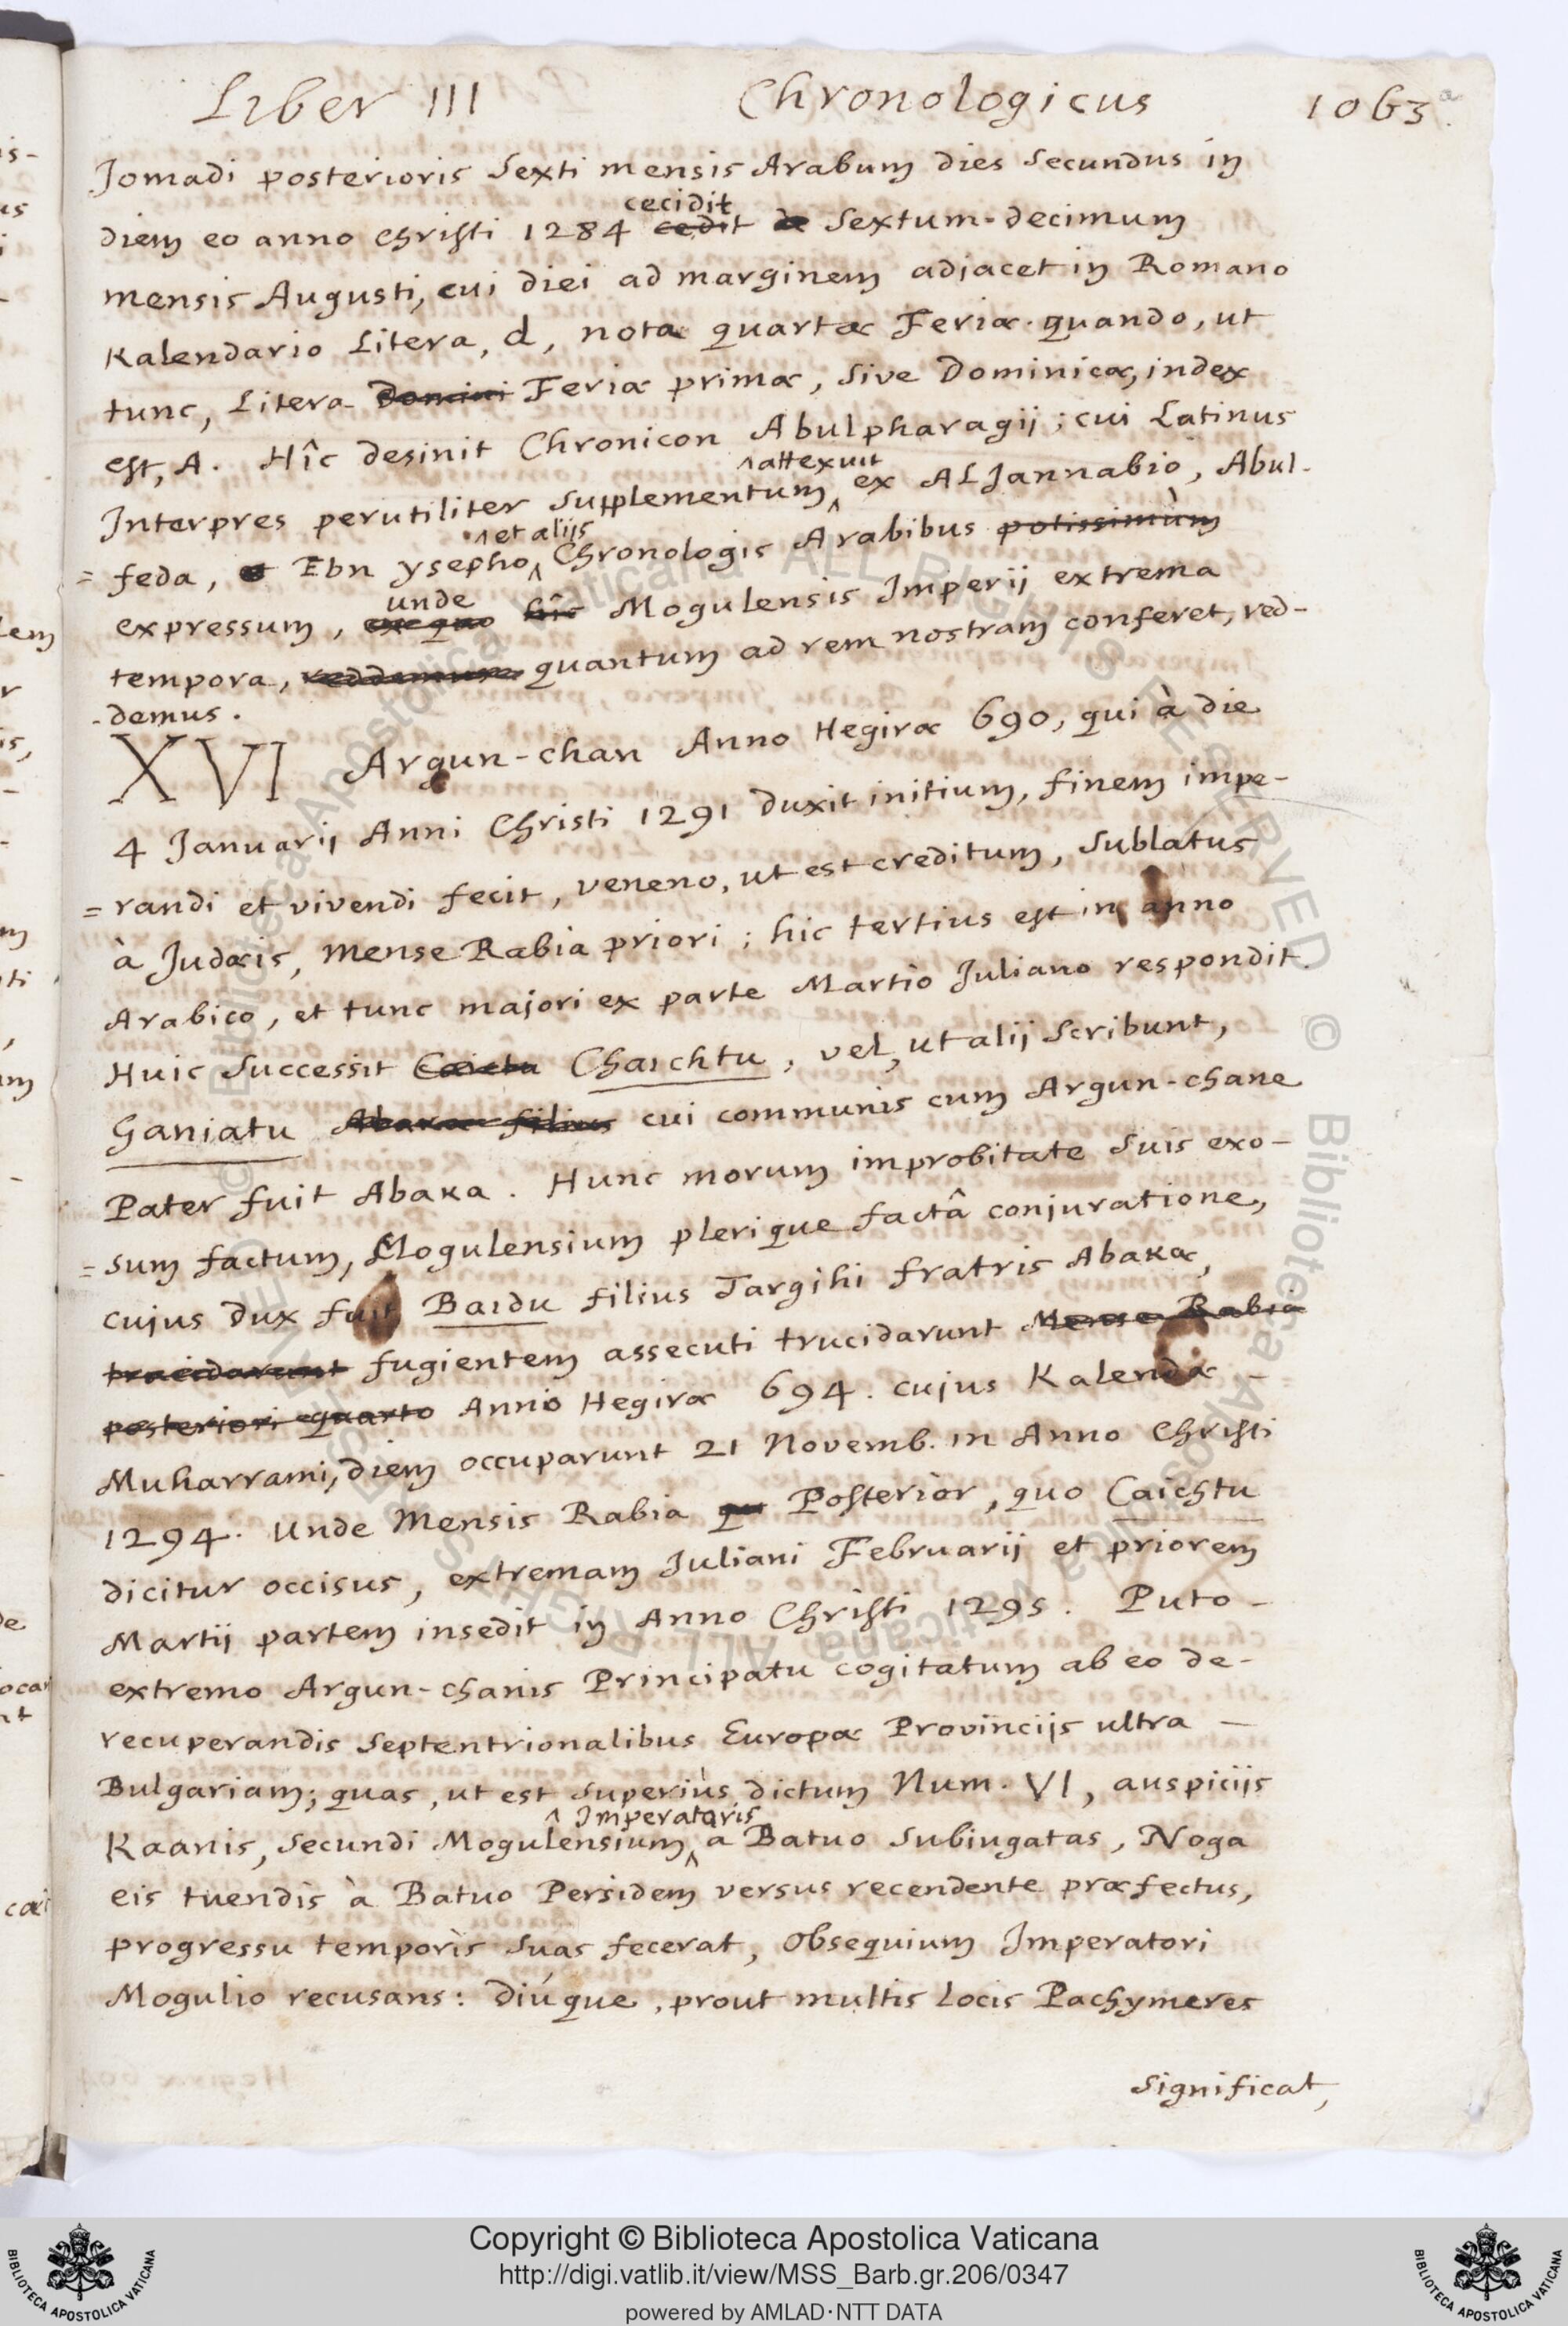 Liber III Chronologicus 1063a.
Jomadi posterioris sexti mensis Arabum dies secundus in
cecidit
diem eo anno Christi 1284 cedit de sextum-decimum
mensis Augusti, cui diei ad marginem adjacet in Romano
Kalendario Litera, d, nota quartæ Feriæ. quando, ut
tunc, Litera Domini Feriæ primæ, sive Dominicæ, index
est, A. Hîc desinit Chronicon Abulpharagij; cui Latinus
attexuit
Interpres perutiliter supplementum ex ALJannabio, Abul-
et alijs
=feda, et Ebn ysepho Chronologis Arabibus potissimùm
unde
expressum, ex quo hîc Mogulensis Imperij extrema
tempora, reddemus quantum ad rem nostram conferet, red-
-demus.
XVI Argun-chan Anno Hegiræ 690, qui à die
4 Januarij Anni Christi 1291 duxit initium, finem impe-
=randi et vivendi fecit, veneno, ut est creditum, sublatus
à Judæis, mense Rabia priori; hic tertius est in anno
Arabico, et tunc majori ex parte Martio Juliano respondit.
Huic successit Caictu Chaichtu, vel, ut alij scribunt,
Ganiatu Abakæ filius cui communis cum Argun-chane
Pater fuit Abaka. Hunc morum improbitate suis exo-
=sum factum, Mogulensium plerique factâ conjuratione,
cujus dux fuit Baidu filius Targihi fratris Abakæ,
trucidarunt fugientem assecuti trucidarunt Mense Rabia
posteriori quarto Anno Hegiræ 694. cujus Kalendæ -
Muharrami, diem occuparunt 21 Novemb. in Anno Christi
1294. unde Mensis Rabia qu Posterior, quo Caichtu
dicitur occisus, extremam Juliani Februarij et priorem
Martij partem insedit in Anno Christi 1295. Puto -
extremo Argun-chanis Principatu cogitatum ab eo de-
recuperandis septentrionalibus Europæ Provincijs ultra -
Bulgariam; quas, ut est superiùs dictum Num. VI, auspicijs
Imperatoris
Kaanis, secundi Mogulensium a Batuo subiugatas, Noga
eis tuendis à Batuo Persidem versus recendente præfectus,
progressu temporis suas fecerat, obsequium Imperatori
Mogulio recusans: diúque, prout multis locis Pachymeres
significat,
Copyright © Biblioteca Apostolica Vaticana
http://digi.vatlib.it/view/MSS_Barb.gr.206/0347
powered by AMLAD·NTT DATA